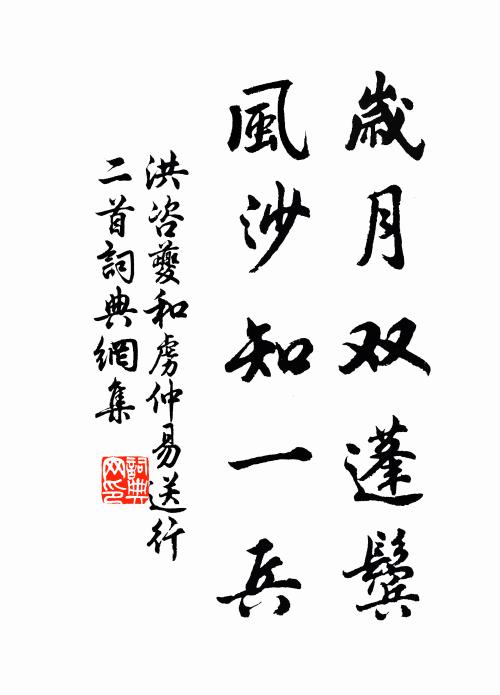 歲月双蓬鬢
風沙知一兵
洪咨夔和虜仲易送行
二首詞典網集
詞典
网印